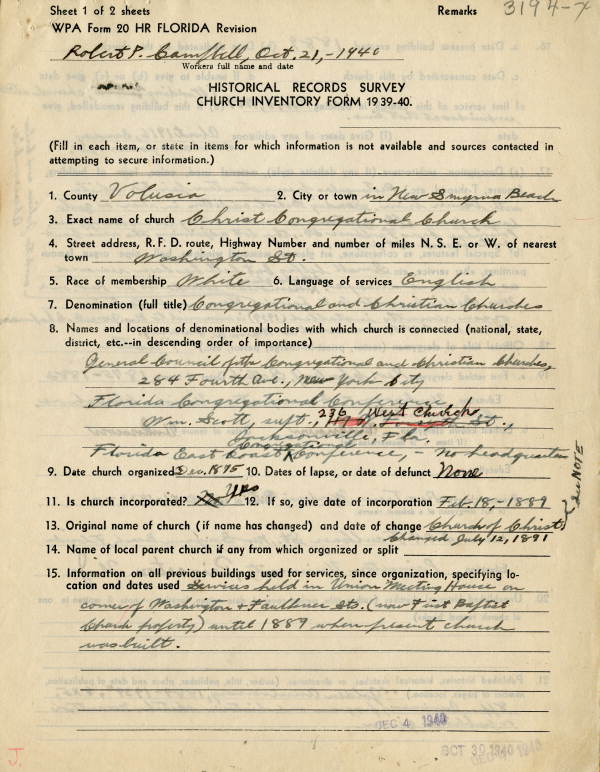 Sheet 1 of 2 sheets Remarks 3194-X
WPA Form 20 HR FLORIDA Revision
Robert P. Campbell, Oct. 21,-1940
Workers full name and date
HISTORICAL RECORDS SURVEY
CHURCH INVENTORY FORM 1939-40.
(Fill in each item, or state in items for which information is not available and sources contacted in
attempting to secure information.)
1. County Volusia 2. City or town in New Smyrna Beach
3. Exact name of church Christ Congregational Church
4. Street address, R. F. D. route, Highway Number and number of miles N. S. E. or W. of nearest
town Washington St.
5. Race of membership White 6. Language of services English
7. Denomination (full title) Congregational and Christian Churches
8. Names and locations of denominational bodies with which church is connected (national, state,
district, etc.--in descending order of importance)
General Council of the Congregational and Christian Churches,
284 Fourth Ave., New York City
Florida Congregational Conference
Wm. Scott, supt., 236 West Church St.,
Jacksonville, Fla.
Congregational
Florida East Coast Conference, - No headquarters
9. Date church organized Dec. 1875 10. Dates of lapse, or date of defunct None
11. Is church incorporated? No Yes 12. If so, give date of incorporation Feb. 18,-1889
see NOTE
13. Original name of church (if name has changed) and date of change Church of Christ
Changed July 12, 1891
14. Name of local parent church if any from which organized or split
15. Information on all previous buildings used for services, since organization, specifying lo-
cation and dates used Services held in Union Meeting House on
corner of Washington & Faulkner Sts. (now First Baptist
Church property) until 1889 when present church
was built.
DEC 4 1940
OCT 30 1940
J.